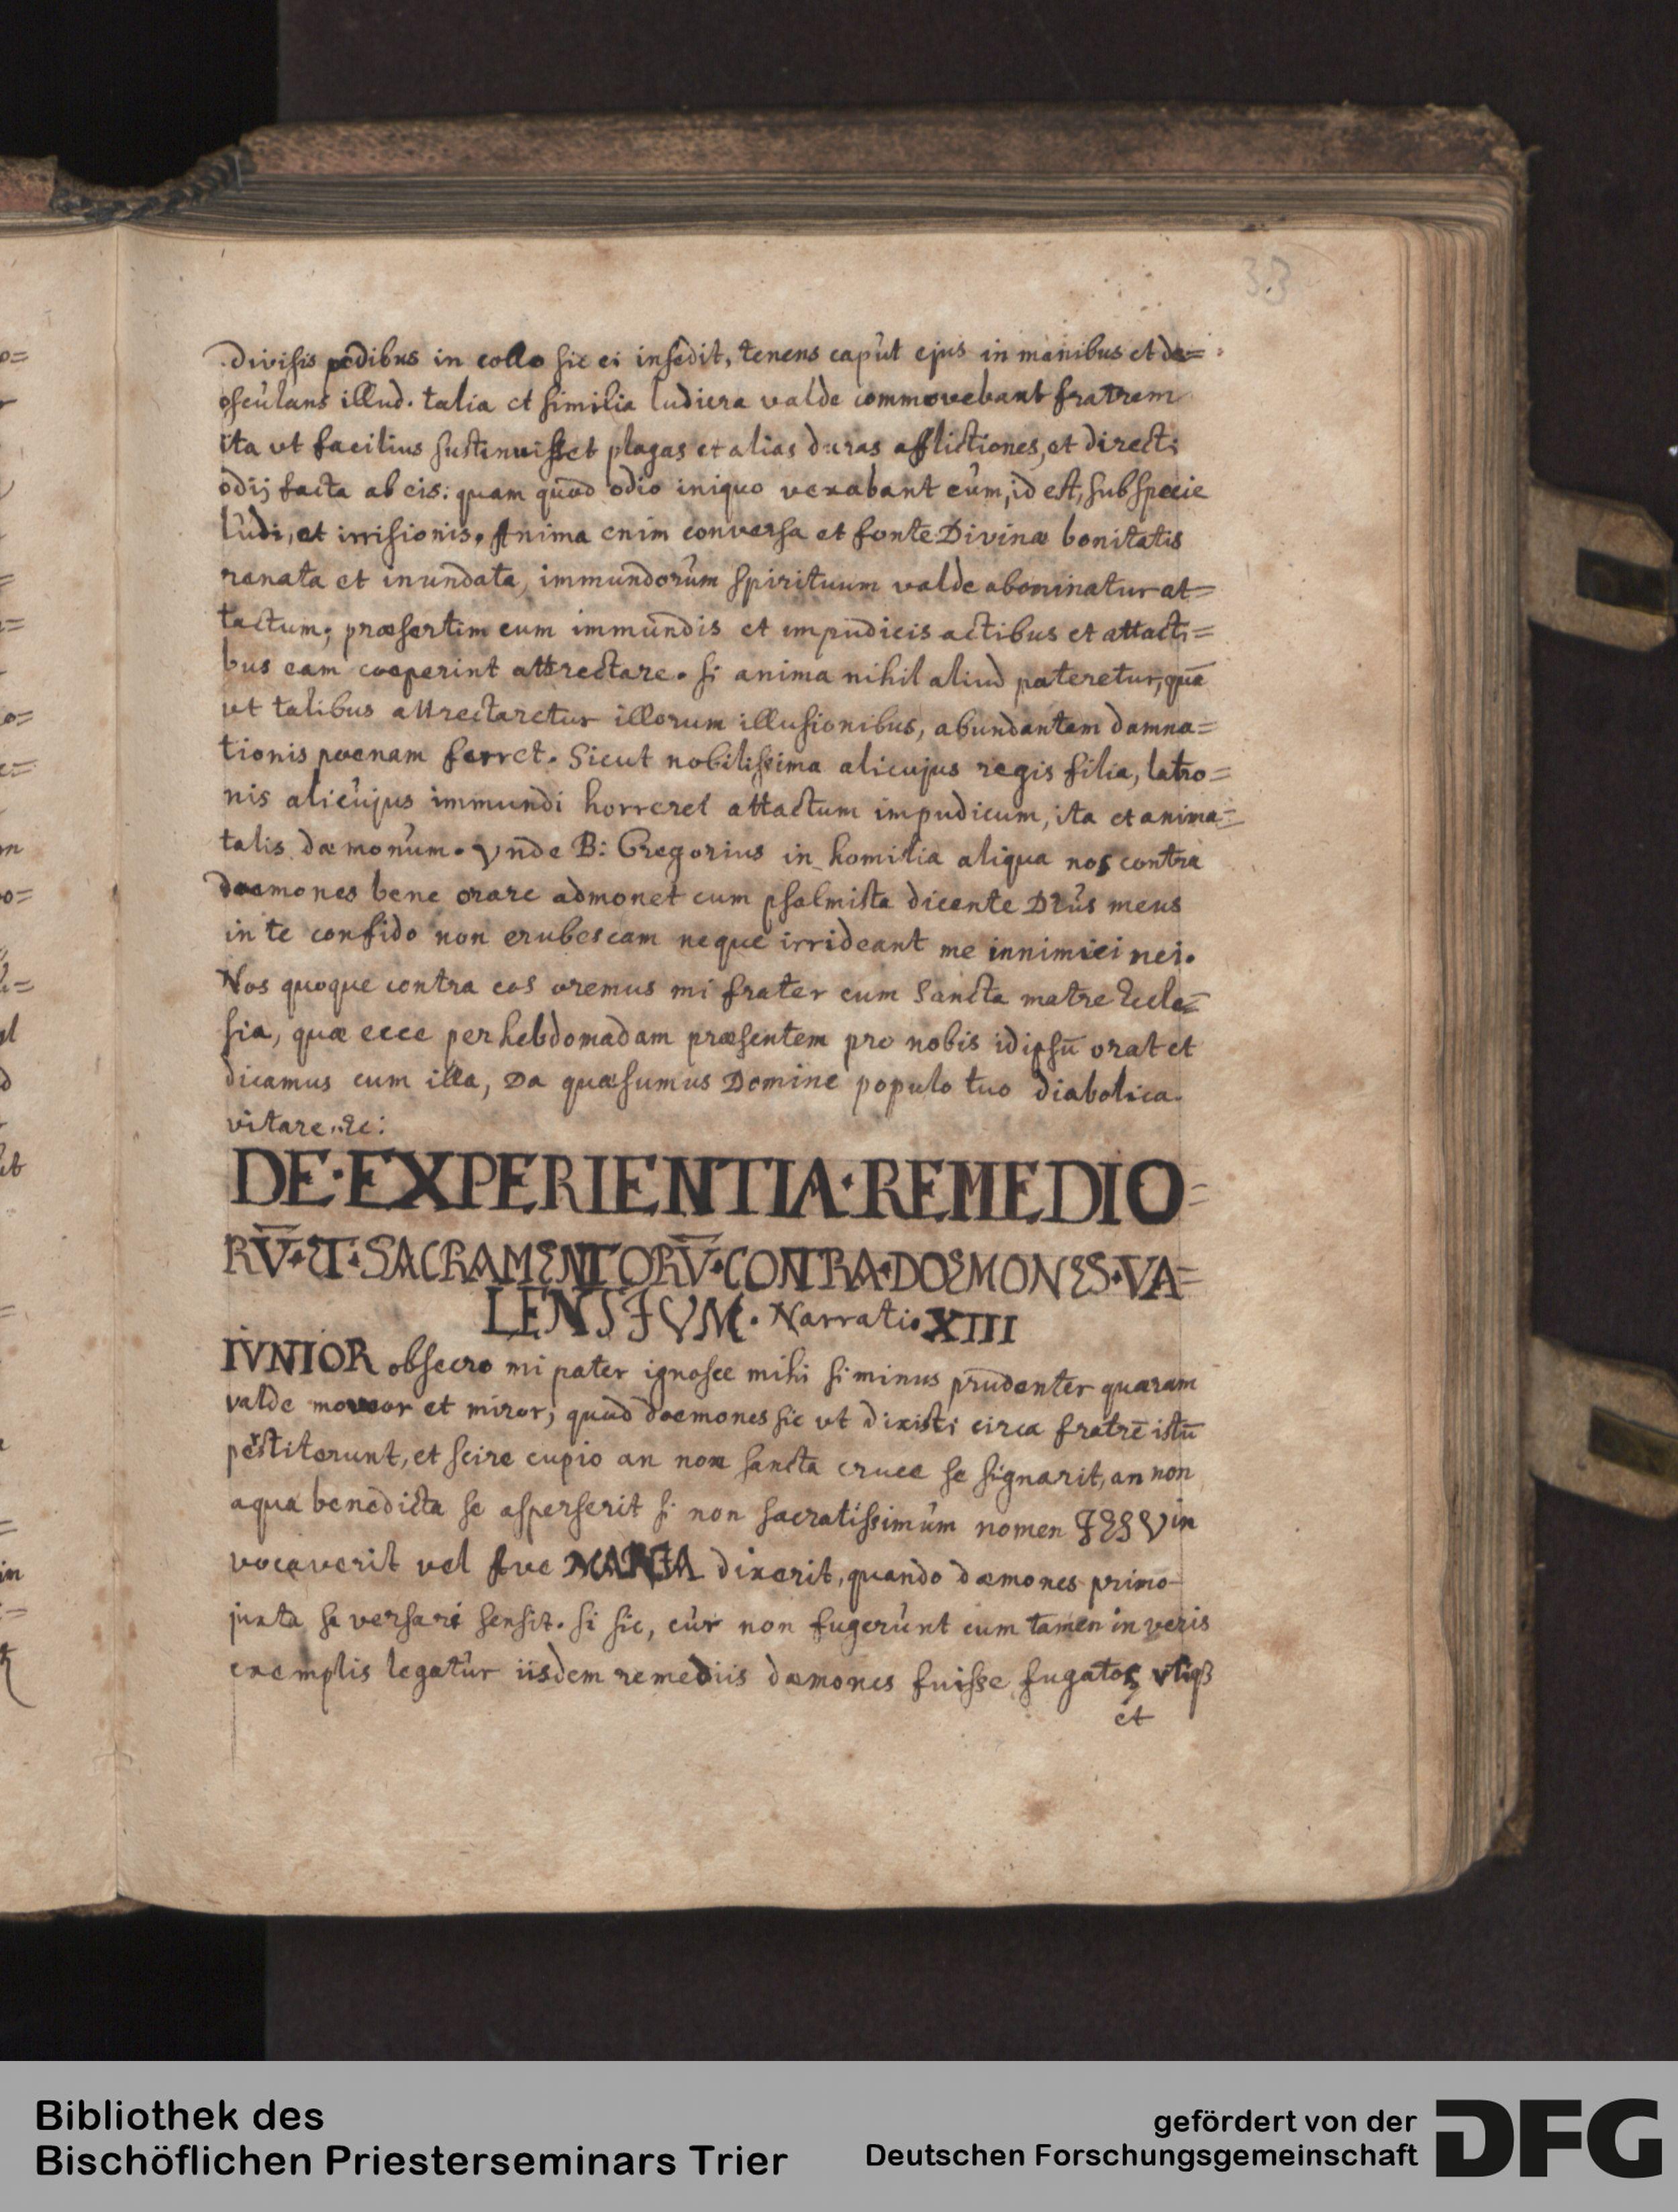 33
Divisis pedibus in collo sic ei insedit, tenens caput ejus in manibus et de=
osculans illud. talia et similia ludicra valde commovebant fratrem
ita vt facilius sustinuisset plagas et alias duras afflictiones, et directi
odij facta ab eis: quam quod odio iniquo vexabant eum, id est, sub specie
ludi, et irrisionis. Anima enim conversa et fonte Divinæ bonitatis
renata et inundata, immundorum spirituum valde abominatur at=
tactum; præsertim cum immundis et impudicis actibus et attacti=
bus eam coeperint attrectare. si anima nihil aliud pateretur, quā
vt talibus attrectaretur illorum illusionibus, abundantem damna=
tionis poenam ferret. Sicut nobilissima alicujus regis filia, latro=
nis alicujus immundi horreret attactum impudicum, ita et anima=
talis dæmonum. Vnde B: Gregorius in homilia aliqua nos contra
daemones bene orare admonet cum psalmista dicente Deus meus
in te confido non erubescam neque irrideant me innimici mei.
Nos quoque contra eos oremus mi frater cum Sancta matre Eccle=
sia, quæ ecce per hebdomadam præsentem pro nobis idipsū orat et
dicamus cum illa, Da quæsumus Domine populo tuo diabolica
vitare. &c:
DE·EXPERIENTIA·REMEDIO=
RV̄·ET·SACRAMENTORV̄·CONTRA·DOEMONES·VA=
LENSIVM. Narratio XIII
IVNIOR obsecro mi pater ignosce mihi si minus prudenter quæram
valde moveor et miror, quod doemones sic vt dixisti circa fratrē istū
perstiterunt, et scire cupio an non sancta cruce se signarit, an non
aqua benedicta se asperserit si non sacratissimum nomen IESV in
vocaverit vel Ave MARIA dixerit, quando dæmones primo
juxta se versari sensit. si sic, cur non fugerunt cum tamen in veris
exemplis legatur iisdem remediis dæmones fuisse fugatos, vtiqꝫ
et
Bibliothek des
Bischöflichen Priesterseminars Trier
gefördert von der
Deutschen Forschungsgemeinschaft
DFG